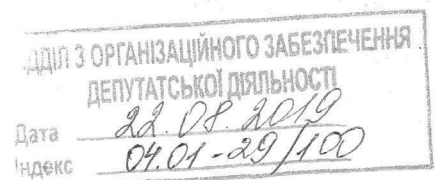 ДДІЛ З ОРГАНІЗАЦІЙНОГО ЗАБЕЗПЕЧЕННЯ
ДЕПУТАТСЬКОЇ ДІЯЛЬНОСТІ
Дата 22.08.2019
ндекс 04.01-29/100